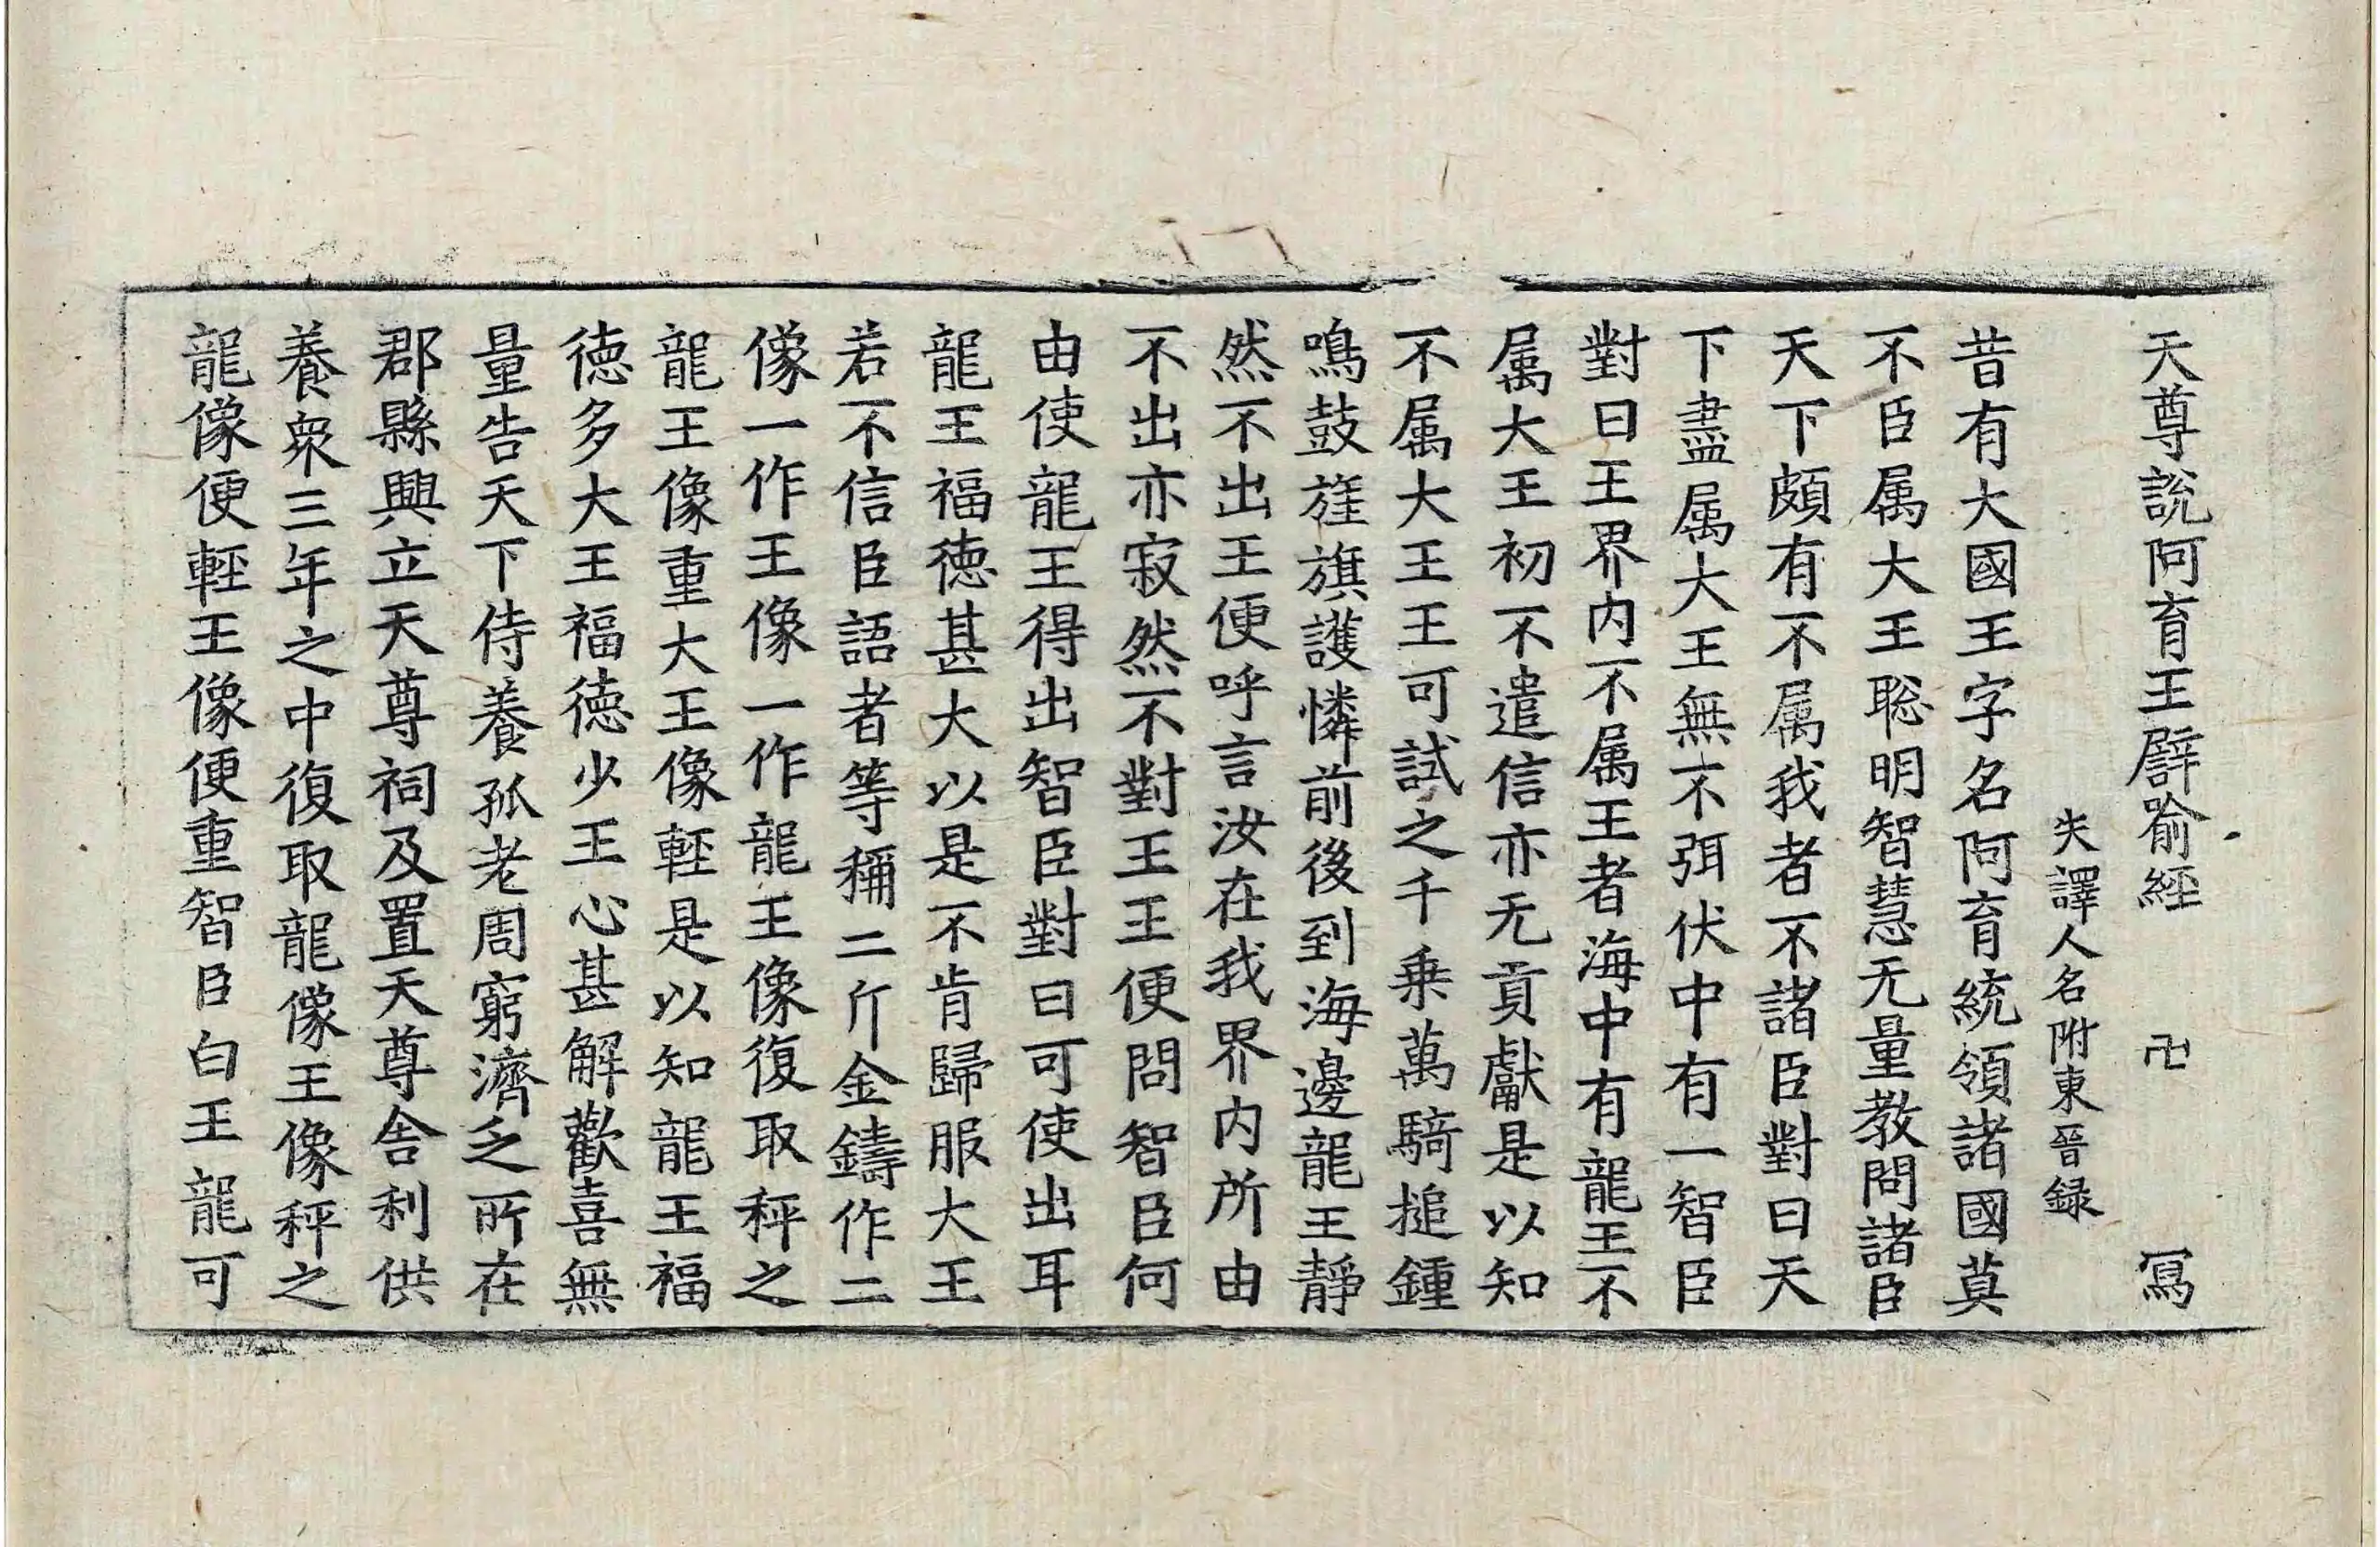 天尊說阿育王譬喻經 卍 冩
失譯人名附東晉録
昔有大國王字名阿育統領諸國莫
不臣属大王聡明智慧无量教問諸臣
天下頗有不属我者不諸臣對曰天
下盡属大王無不弭伏中有一智臣
對曰王界内不属王者海中有龍王不
属大王初不遣信亦无貢獻是以知
不属大王王可試之千乗萬騎搥鍾
鳴鼓旌旗護憐前後到海邊龍王静
然不出王便呼言汝在我界内所由
不出亦寂然不對王王便問智臣何
由使龍王得出智臣對曰可使出耳
龍王福徳甚大以是不肯歸服大王
若不信臣語者等稱二斤金鑄作二
像一作王像一作龍王像復取秤之
龍王像重大王像輕是以知龍王福
徳多大王福徳少王心甚解歡喜無
量告天下侍養孤老周窮濟乏所在
郡縣興立天尊祠及置天尊舍利供
養衆三年之中復取龍像王像秤之
龍像便輕王像便重智臣白王龍可